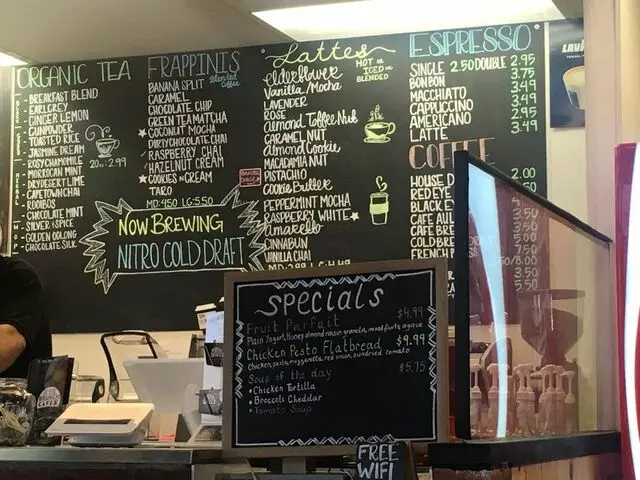 ORGANIC TEA
- BREAKFAST BLEND
- EARL GREY
- GINGER LEMON
- GUNPOWDER
- TOASTED RICE
- JASMINE DREAM
- ROSY CHAMOMILE
- MORROCAN MINT
- DRY DESERT LIME
- CAPETOWN CHAI
- ROOIBOS
- CHOCOLATE MINT
- SILVER & SPICE
- GOLDEN OOLONG
- CHOCOLATE SILK
20oz-2.99
FRAPPINIS
Blended Coffee
BANANA SPLIT
CARAMEL
CHOCOLATE CHIP
GREEN TEA MATCHA
COCONUT MOCHA
DIRTY CHOCOLATE CHAI
RASPBERRY CHAI
HAZELNUT CREAM
COOKIES N CREAM
TARO
MD:4.50 LG:5.50
NOW BREWING
NITRO COLD DRAFT
Lattes
HOT or ICED or BLENDED
elderflower
Vanilla/Mocha
LAVENDER
ROSE
Almond Toffee Nut
CARAMEL NUT
Almond Cookie
MACADAMIA NUT
PISTACHIO
Cookie Butter
PEPPERMINT MOCHA
RASPBERRY WHITE
Amarello
CINNABUN
VANILLA CHAI
ESPRESSO
SINGLE 2.50 DOUBLE 2.95
BON BON 3.75
MACCHIATO 3.49
CAPPUCCINO 3.49
AMERICANO 2.95
LATTE 3.49
COFFEE
HOUSE 2.00
RED EYE
BLACK EY
CAFE AUL 3.50
CAFE BRE 5.00
COLD BRE 7.50
FRENCH P
3.50
5.50
LAV
Specials
Fruit Parfait $4.99
Plain Yogurt, Honey almond raisin granola, mixed fruit, agave
Chicken Pesto Flatbread $9.99
chicken, pesto, mozzarella, red onion, sundried tomato
Soup of the day $5.75
• Chicken Tortilla
• Broccoli Cheddar
• Tomato Soup
FREE
WIFI